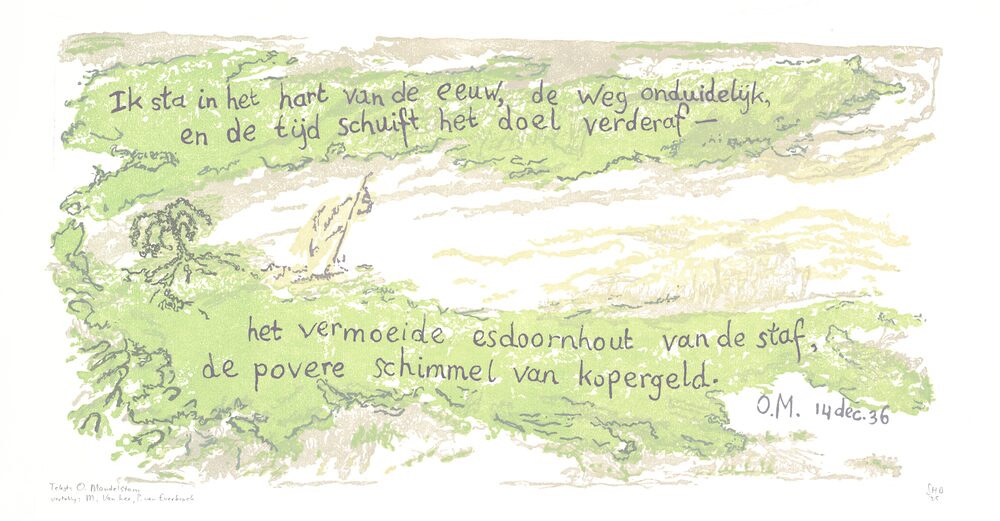 Ik sta in het hart van de eeuw, de weg onduidelijk,
en de tijd schuift het doel verderaf —
het vermoeide esdoornhout van de staf,
de povere schimmel van kopergeld.
O.M. 14 dec. 36
Tekst: O. Mandelstam,
vertaling: M. Van Hee, P. van Everbroeck